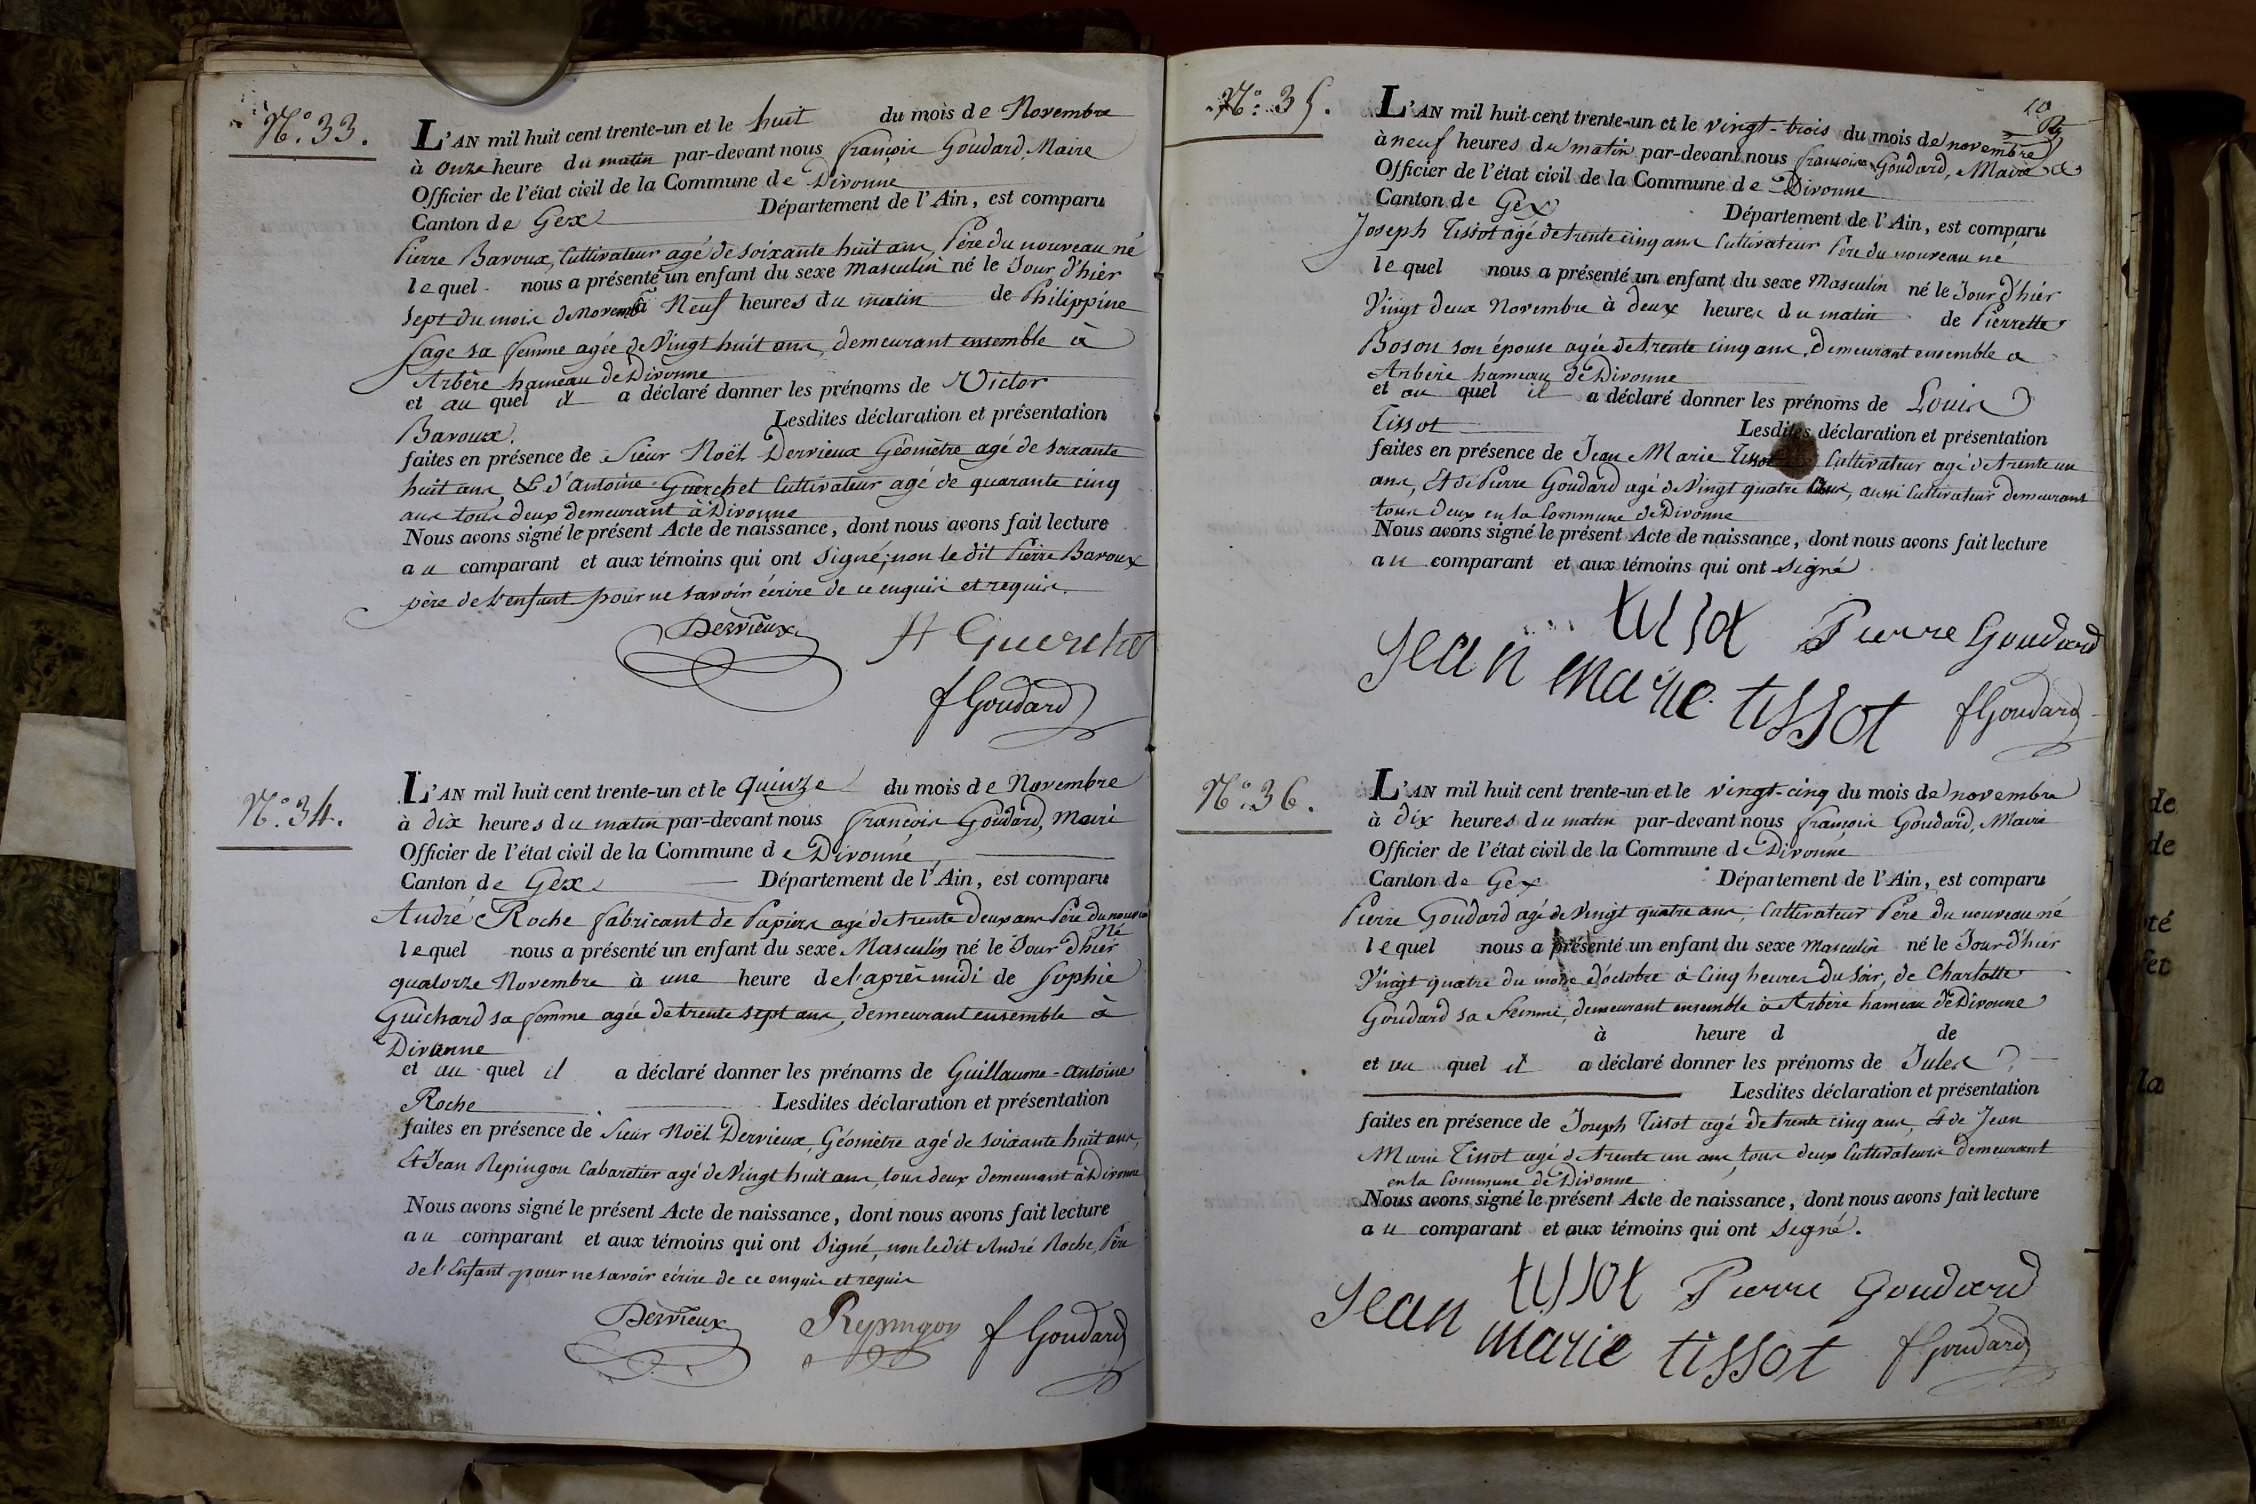 N.° 33.
L'AN mil huit cent trente-un et le huit du mois de Novembre
à onze heure du matin par-devant nous françois Goudard, Maire
Officier de l'état civil de la Commune de Divonne
Canton de Gex Département de l'Ain, est comparu
Pierre Baroux, Cultivateur agé de soixante huit ans, Père du nouveau né
lequel nous a présenté un enfant du sexe Masculin né le Jour d'hier
sept du mois de Novemb. à Neuf heures du matin de Philippine
sage sa femme agée de Vingt huit ans, demeurant ensemble à
Arbère hameau de Divonne
et au quel il a déclaré donner les prénoms de Victor
Baroux. Lesdites déclaration et présentation
faites en présence de Sieur Noël Dervieux Géomètre agé de soixante
huit ans, & d'antoine Guerchet Cultivateur agé de quarante cinq
ans tous deux demeurant à Divonne
Nous avons signé le présent Acte de naissance, dont nous avons fait lecture
au comparant et aux témoins qui ont signé, non le dit Pierre Baroux
père de l'enfant pour ne savoir écrire de ce enquis et requis.
Dervieux A Guerchet
f Goudard
N.° 34.
L'AN mil huit cent trente-un et le quinze du mois de Novembre
à dix heures du matin par-devant nous françois Goudard, Maire
Officier de l'état civil de la Commune de Divonne
Canton de Gex Département de l'Ain, est comparu
André Roche fabricant de Papiers agé de trente deux ans Père du nouveau
né
lequel nous a présenté un enfant du sexe Masculin né le Jour d'hier
quatorze Novembre à une heure de l'après midi de Sophie
Guichard sa femme agée de trente sept ans, demeurant ensemble à
Divonne
et au quel il a déclaré donner les prénoms de Guillaume-antoine
Roche Lesdites déclaration et présentation
faites en présence de Sieur Noël Dervieux, Géomètre agé de soixante huit ans,
Et Jean Repingon Cabaretier agé de Vingt huit ans, tous deux demeurant à Divonne
Nous avons signé le présent Acte de naissance, dont nous avons fait lecture
au comparant et aux témoins qui ont signé, non le dit André Roche, Père
de l'Enfant pour ne savoir écrire de ce enquis et requis
Dervieux Repingon f Goudard
10
N.° 35.
L'AN mil huit cent trente-un et le vingt-trois du mois de novembre
à neuf heures du matin par-devant nous françois Goudard, Maire
Officier de l'état civil de la Commune de Divonne
Canton de Gex Département de l'Ain, est comparu
Joseph Tissot agé de trente cinq ans Cultivateur Père du nouveau né
lequel nous a présenté un enfant du sexe Masculin né le Jour d'hier
Vingt deux Novembre à deux heures du matin de Pierrette
Boson son épouse agée de trente cinq ans, demeurant ensemble a
Arbère hameau de Divonne
et au quel il a déclaré donner les prénoms de Louis
Tissot Lesdites déclaration et présentation
faites en présence de Jean Marie Tissot Cultivateur agé de trente un
ans, Et de Pierre Goudard agé de Vingt quatre ans, aussi Cultivateur demeurant
tous deux en la Commune de Divonne
Nous avons signé le présent Acte de naissance, dont nous avons fait lecture
au comparant et aux témoins qui ont signé
tissot Pierre Goudard
Jean marie tissot f Goudard
N.° 36.
L'AN mil huit cent trente-un et le vingt-cinq du mois de novembre
à dix heures du matin par-devant nous françois Goudard, Maire
Officier de l'état civil de la Commune de Divonne
Canton de Gex Département de l'Ain, est comparu
Pierre Goudard agé de Vingt quatre ans, Cultivateur Père du nouveau né
lequel nous a présenté un enfant du sexe Masculin né le Jour d'hier
Vingt quatre du mois d'octobre à Cinq heures du soir, de Charlotte
Goudard sa femme, demeurant ensemble à Arbère hameau de Divonne
à heure d de
et au quel il a déclaré donner les prénoms de Jules
Lesdites déclaration et présentation
faites en présence de Joseph Tissot agé de trente cinq ans, Et de Jean
Marie Tissot agé de trente un ans, tous deux Cultivateurs demeurant
en la Commune de Divonne
Nous avons signé le présent Acte de naissance, dont nous avons fait lecture
au comparant et aux témoins qui ont signé.
tissot Pierre Goudard
Jean marie tissot f Goudard
de
de
la